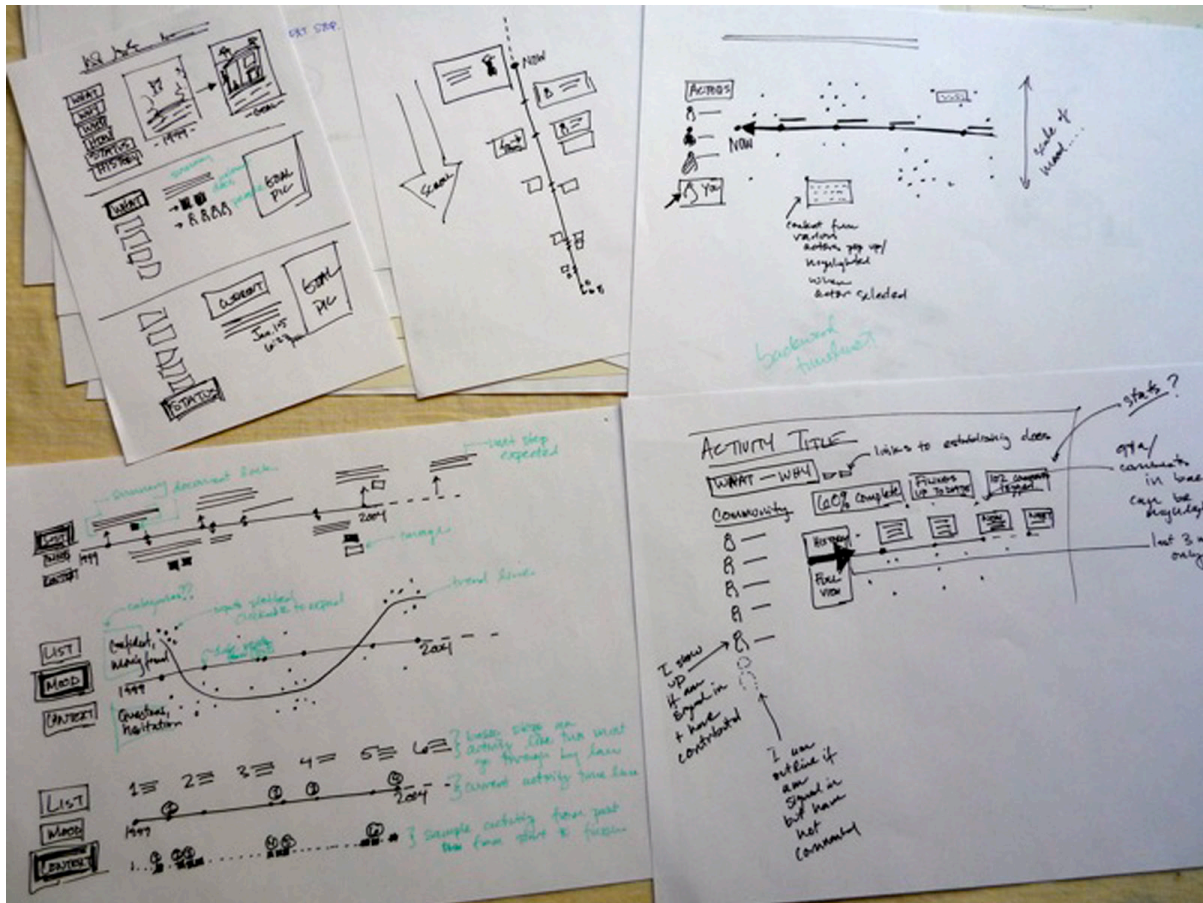 WHAT
WHY
WHO
HOW
STATUS
HISTORY
- 1999 -
- GOAL -
WHAT
summary
people
GOAL
PIC
CURRENT
Jan. 15
GOAL
PIC
STATUS
NEXT STEP.
NOW
SCROLL
ACTORS
NOW
YOU
scale of
mood...
content from
various
actors pop up/
highlighted
when
actor selected
backward
timeline?
summary
document link
next step
expected
LIST
MOOD
CONTEXT
1999
2004
image
categories??
inputs plotted
clickable to expand
trend line
LIST
MOOD
CONTEXT
Confident,
moving forward
1999
2004
Questions,
hesitation
1 2 3 4 5 6
basic steps an
activity like this must
go through by law
LIST
MOOD
CONTEXT
1999
2004
current activity time line
sample activity from past
from start to finish
ACTIVITY TITLE
WHAT — WHY
links to establishing docs
stats?
Community
60% Complete
UP TO DATE
102 comments
logged
comments
in
can be
HISTORY
FULL
VIEW
NOW
NEXT
last 3
only
I show
up
if am
signed in
+ have
contributed
I am
outline if
am
signed in
but have
not
commented